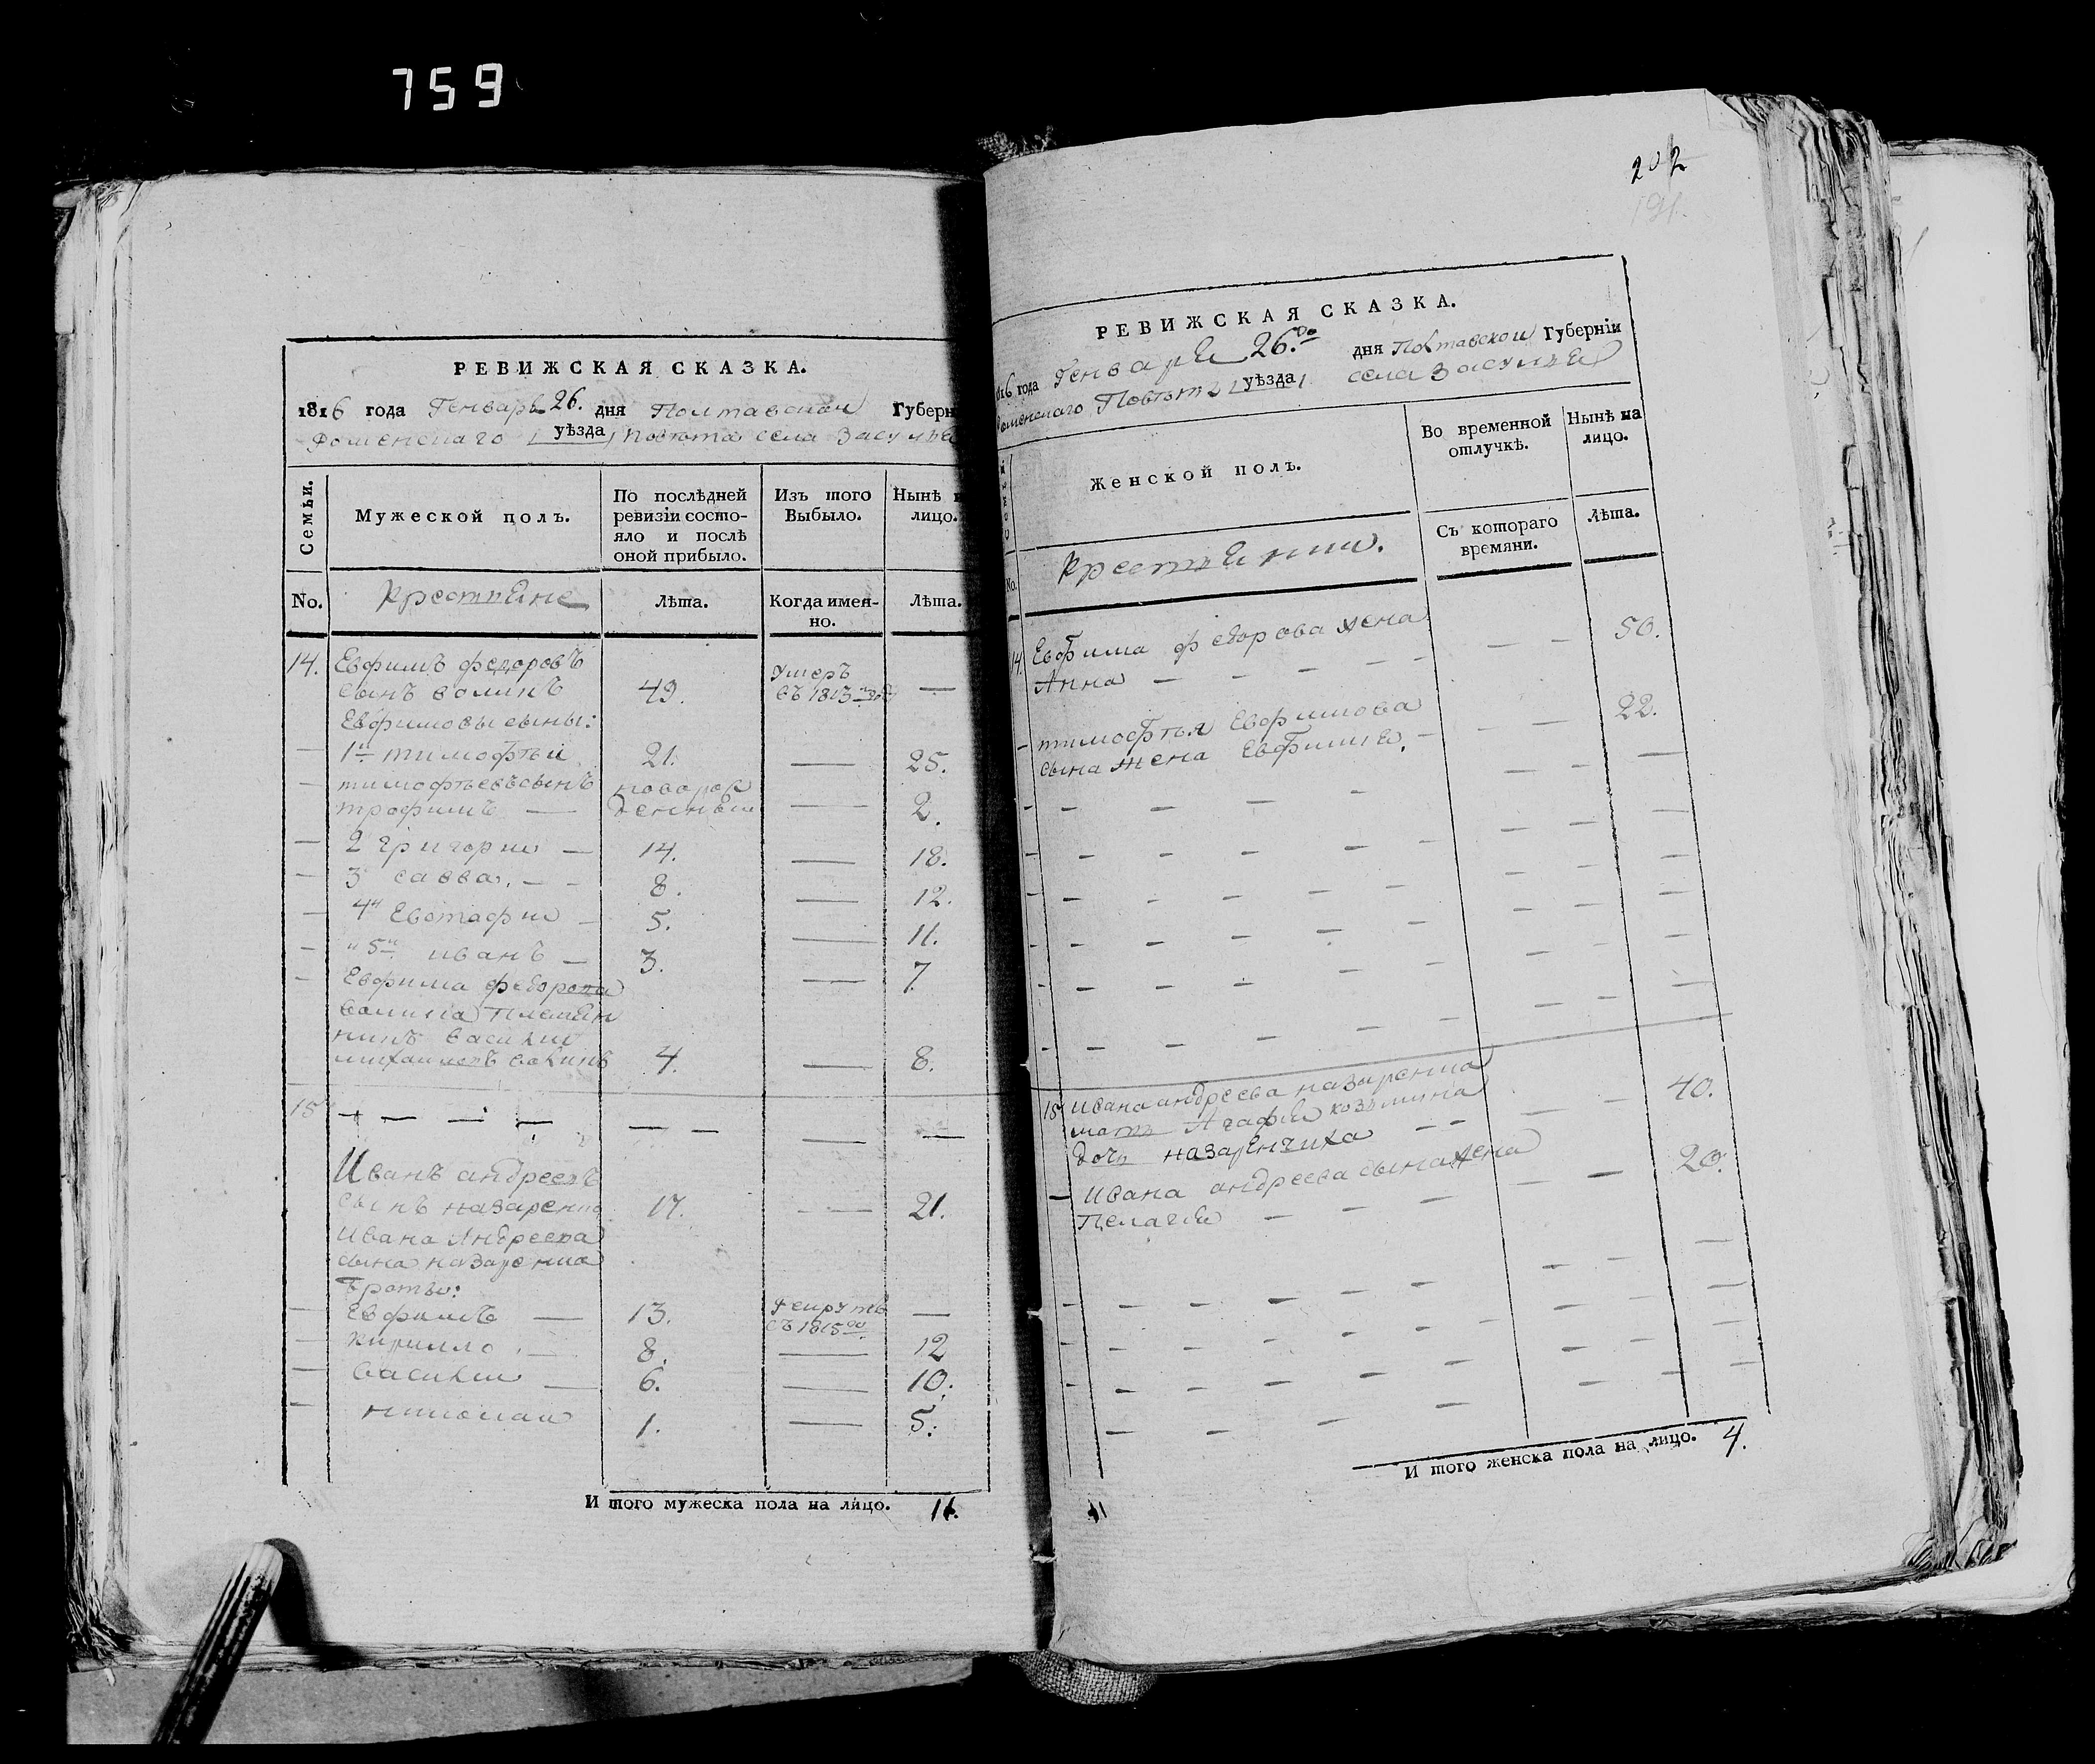 759
РЕВИЖСКАЯ СКАЗКА.
1816 года Генваря 26. дня Полтавской Губерн
Роменскаго уѣзда Повѣта села Засулья
Семьи.
Мужеской полъ.
По послѣдней ревизіи состо-яло и послѣ оной прибыло.
Изъ того Выбыло.
Нынѣ лицо.
No.
Крестьяне
Лѣта.
Когда имен-но.
Лѣта.
14. Евфимъ федоровъ
сынъ 49. Умеръ въ 1813 —
Евфимовы сыны:
— 1й тимофѣй 21. — 25.
— тимофѣевъ сынъ новорож
трофимъ — денный — 2.
— 2 григорий — 14. — 18.
— 3 савва. — — 8. — 12.
— 4й Евстафий — 5. — 11.
— 5й иванъ — 3. — 7.
— Евфима федорова
племян
никъ василий
михайловъ 4. — 8.
15 — — — — — — — —
Иванъ андреевъ
сынъ назаренко 17. — — 21.
Ивана Андреева
сына назаренка
братьи:
— Евфимъ — 13. рекрутъ въ 1815 —
— кирилло — 8. — 12
— василий — 6. — 10.
— николай 1. — 5.
И того мужеска пола на лицо. 11.
202
191.
РЕВИЖСКАЯ СКАЗКА.
1816 года Генваря 26го дня Полтавской Губерніи
Роменскаго Повѣта уѣзда села Засулья
Женской полъ.
Во временной отлучкѣ.
Нынѣ на лицо.
No.
Крестьянки.
Съ котораго времяни.
Лѣта.
14. Евфима федорова жена
Анна — — — — — — — 50.
— тимофѣя Евфимова
сына жена Евфимия. — — — 22.
15 Ивана андреева назаренка
мать Агафия козьмина
дочь назаренчиха — — — — 40.
— Ивана андреева сына жена
Пелагия — — — — — 20.
И того женска пола на лицо. 4.